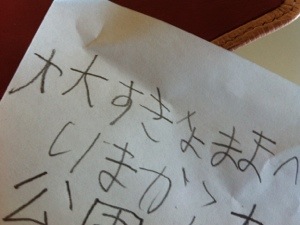 大大すきなままへ
いまから
公園